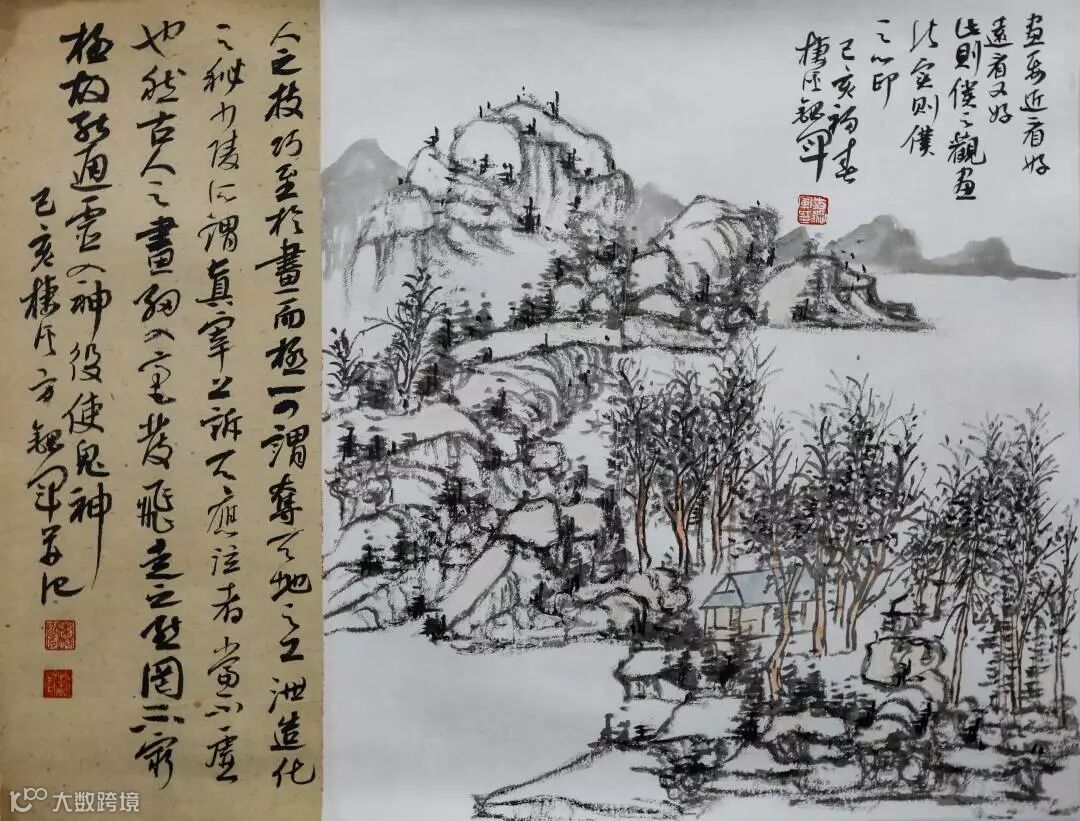 畫要近看好
遠看又好
此則僕之觀畫
法實則僕
之心印
己亥初春
人之技巧至於畫而極可謂奪天地之工泄造化
之秘少陵所謂真宰上訴天應泣者當不虛
也然古人之畫細入毫髮飛走之態罔不窮
極故能通靈入神役使鬼神
己亥棲溪方
大数跨境